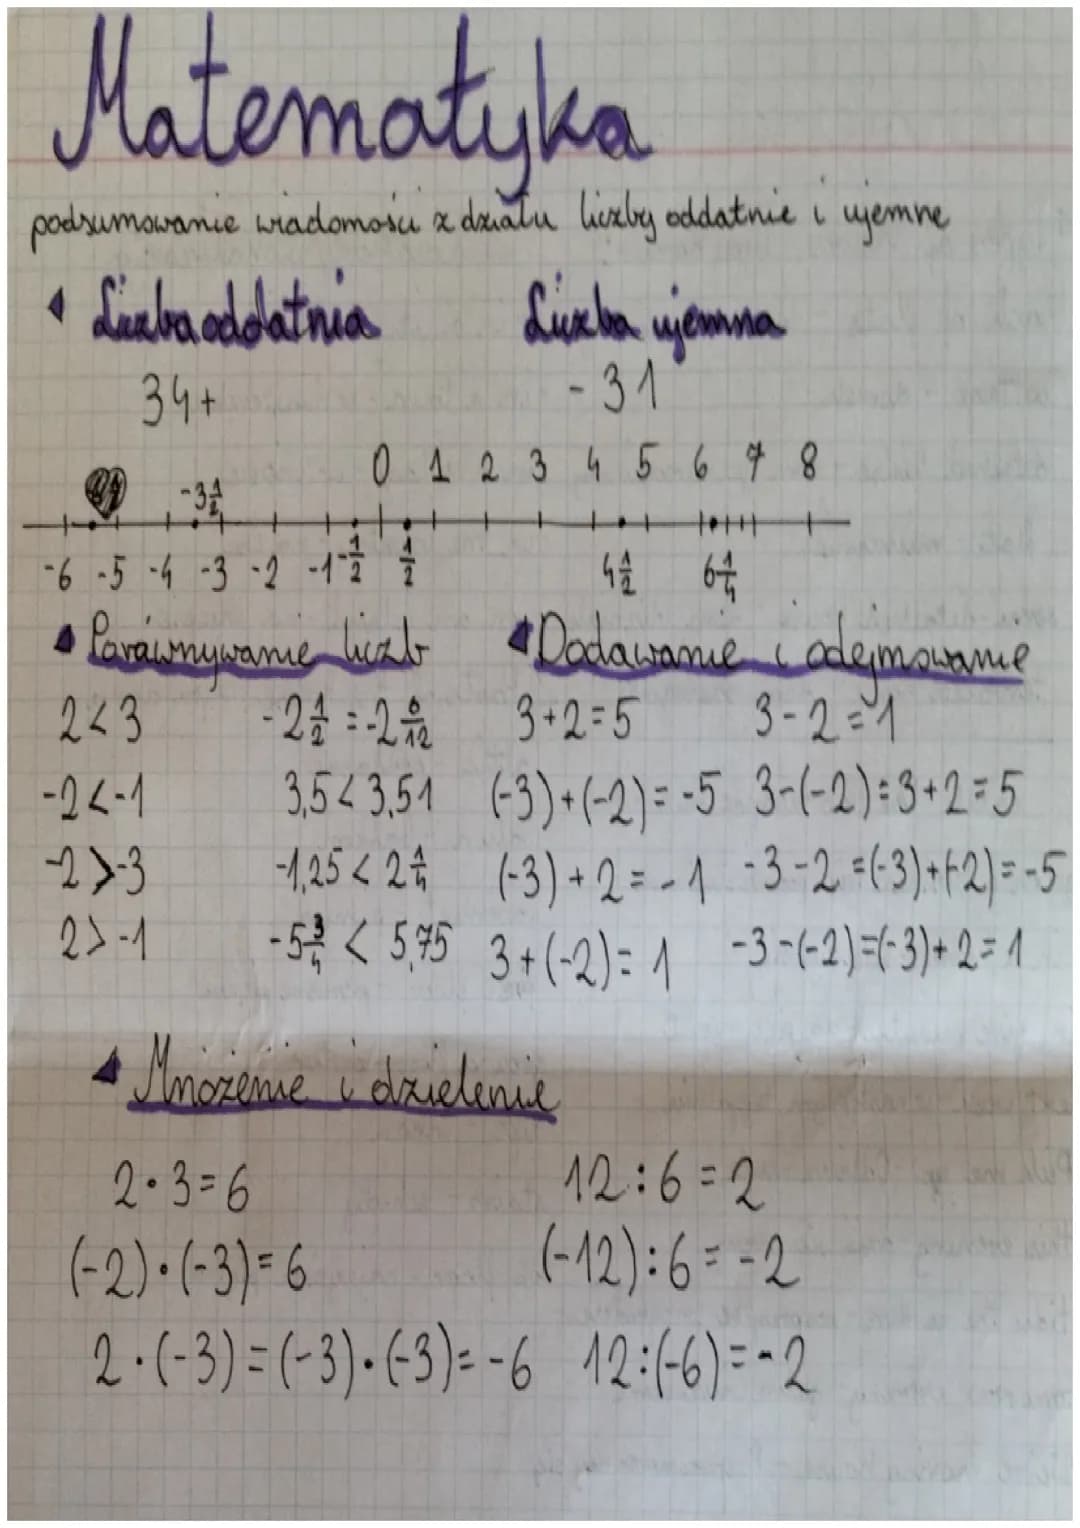 Matematyka
podsumowanie wiadomości z działu liczby oddatnie i ujemne
Liczba oddatnia Liczba ujemna
34+ -31
0 1 2 3 4 5 6 7 8
-3 1/2
-6 -5 -4 -3 -2 -1 -1/2 1/2 4 1/2 6 1/4
Porównywanie liczb Dodawanie i odejmowanie
2<3 -2 1/2 = -2 6/12 3+2=5 3-2=1
-2<-1 3,5<3,51 (-3)+(-2)=-5 3-(-2)=3+2=5
-2>-3 -1,25<2 1/4 (-3)+2=-1 -3-2=(-3)+(-2)=-5
2>-1 -5 3/4 < 5,75 3+(-2)=1 -3-(-2)=(-3)+2=1
Mnożenie i dzielenie
2·3=6 12:6=2
(-2)·(-3)=6 (-12):6=-2
2·(-3)=(-3)·(-3)=-6 12:(-6)=-2